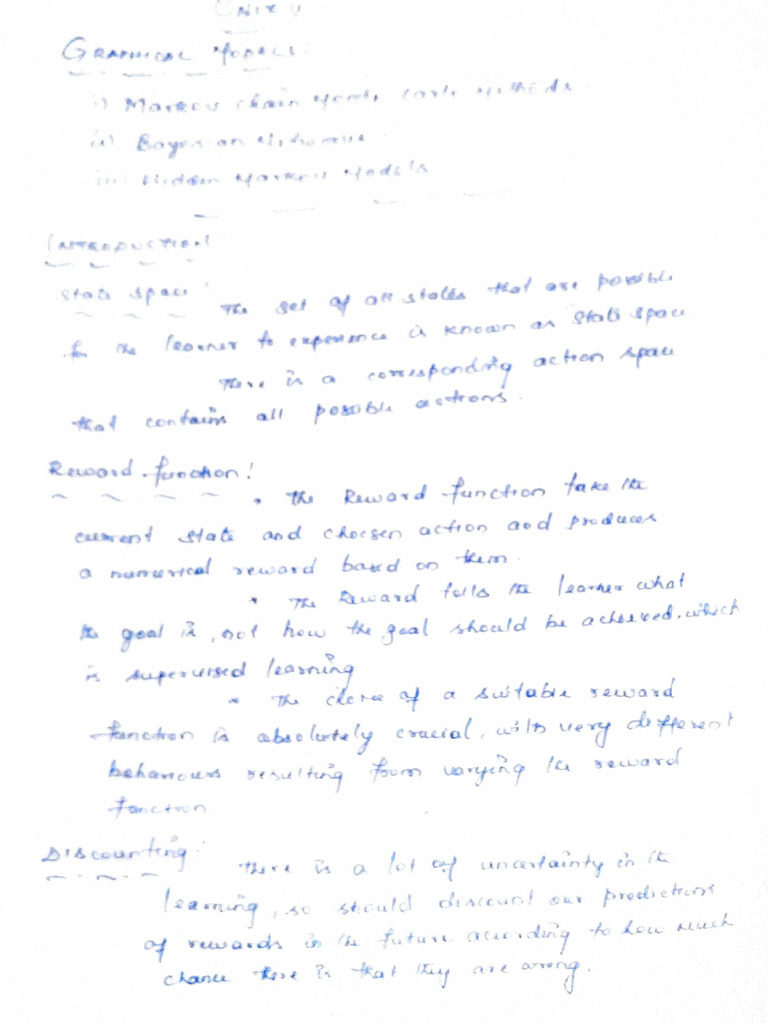 Unit V
Graphical Models:
i) Markov chain Monte Carlo Methods
ii) Bayesian Networks
iii) Hidden Markov Models
Introduction:
State space: The set of all states that are possible
for the learner to experience is known as State space
There is a corresponding action space
that contains all possible actions.
Reward function:
* The Reward function take the
current state and choosen action and produces
a numerical reward based on them.
* The Reward tells the learner what
the goal is, not how the goal should be achieved, which
is supervised learning
* The choice of a suitable reward
function is absolutely crucial, with very different
behaviours resulting from varying the reward
function
Discounting: There is a lot of uncertainty in the
learning, so should discount our predictions
of rewards in the future according to how much
chance there is that they are wrong.